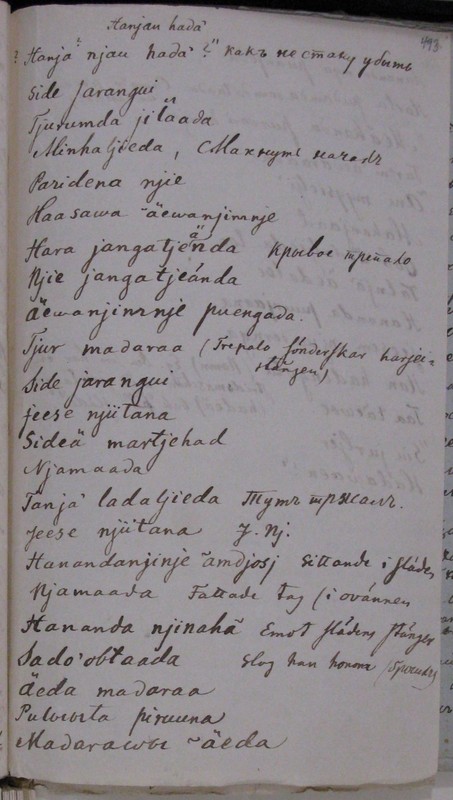 Hanjau hadà
493
? Hanja njau hadà? какъ не стану убить
Side jarangui
Tjurumda jilaada
Minhaljieda, Махнуть началъ
Paridena njie
Haasawa äewanjimnje
Hara jangatjenda Крывое трепало
Njie jangatjeánda
äewanjimnje puengada.
Tjur madaraa (Trepalo sönderskar harjei=
stången)
Side jarangui
jeese njütana
Sideä martjehad
Njamaada
Tänjà ladaljieda Тутъ
jeese njütana J. Nj.
Hanandanjinje amdjosj Sittande i släden
Njamaada Fattade tag (i ovännen
Hananda njinahà Emot slädens stänger
Sado'obtaada Slog han honom
äeda madaraa
piruuna
äeda